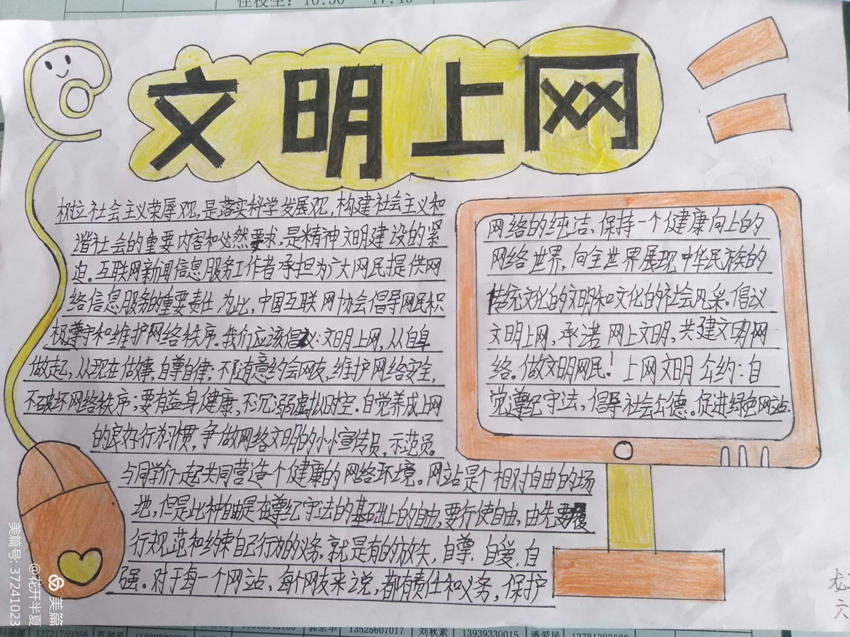 住校生：16:50 17:40
文明上网
树立社会主义荣辱观，是落实科学发展观，构建社会主义和
谐社会的重要内容和必然要求，是精神文明建设的紧
迫。互联网新闻信息服务工作者承担为广大网民提供网
络信息服务的重要责任 为此，中国互联网协会倡导网民积
极遵守和维护网络秩序。我们应该倡：文明上网，从自身
做起，从现在做，自尊自律；不随意约会网友，维护网络安全，
不破坏网络秩序；要有益身健康，不沉溺虚拟时空。自觉养成上网
的良好行为习惯，争做网络文明的小小宣传员，示范员。
与同学们一起共同营造个健康的网络环境。网站是个相对自由的场
地，但是此种自由是在遵纪守法的基础上的自由，要行使自由，由先要履
行规范和约束自己行为的义务。就是有的放矢、自尊、自爱、自
强。对于每一个网站、每个网友来说，都有责任和义务，保护
网络的纯洁、保持一个健康向上的
网络世界，向全世界展现中华民族的
传统文化的文明和文化的社会风采。倡议
文明上网，承诺网上文明，共建文明网
络。做文明网民！上网文明公约：自
觉遵纪守法，倡导社会公德。促进绿色网站
六
美篇
@花开半夏
美篇号：37241023
13525607017 刘秋素 13939330015